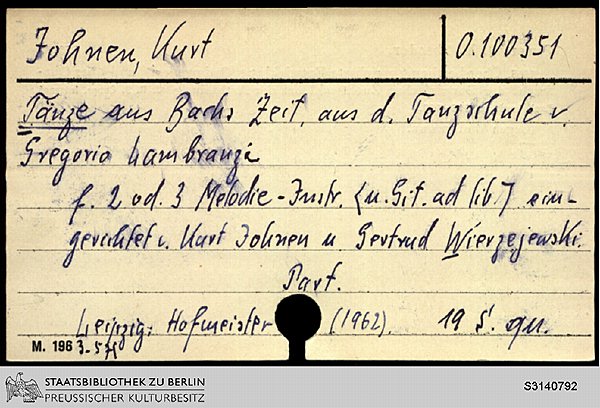 Johnen, Kurt
O.100351
Tänze aus Bachs Zeit, aus d. Tanzschule v.
Gregorio Lambranzi
f. 2 od. 3 Melodie-Instr. (u. Git. ad lib.) ein-
gerichtet v. Kurt Johnen u. Gertrud Wierzejewski.
Part.
Leipzig: Hofmeister (1962). 19 S. qu.
M. 196 3-575
STAATSBIBLIOTHEK ZU BERLIN
PREUSSISCHER KULTURBESITZ
S3140792